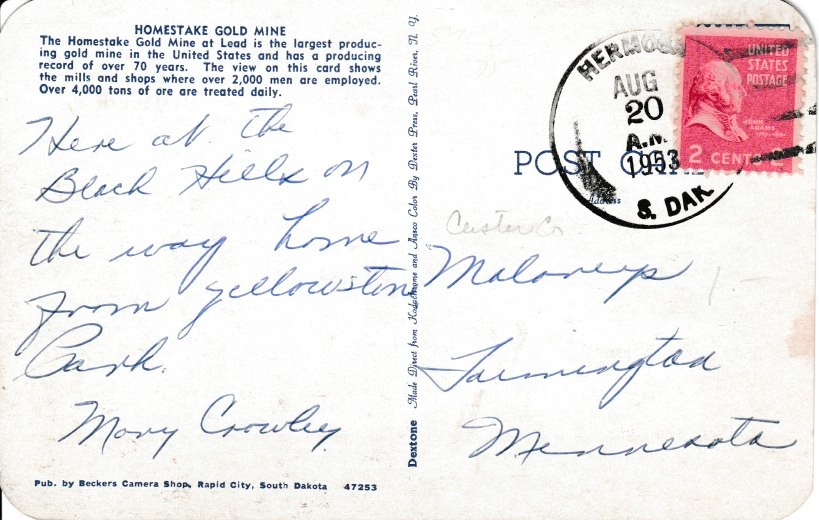 HOMESTAKE GOLD MINE
The Homestake Gold Mine at Lead is the largest produc-
ing gold mine in the United States and has a producing
record of over 70 years. The view on this card shows
the mills and shops where over 2,000 men are employed.
Over 4,000 tons of ore are treated daily.
Here at the
Black Hills on
the way home
from yellowston
Park.
Mary Crowley
Pub. by Beckers Camera Shop, Rapid City, South Dakota 47253
Dextone Made Direct from Kodachrome and Ansco Color By Dexter Press, Pearl River, N. Y.
HERMOSA
AUG
20
A.M.
1953
S. DAK.
UNITED
STATES
POSTAGE
JOHN
ADAMS
2 CENTS 2
POST CARD
Address
Custer Co.
Maloneys
1-
Farmington
Minnesota